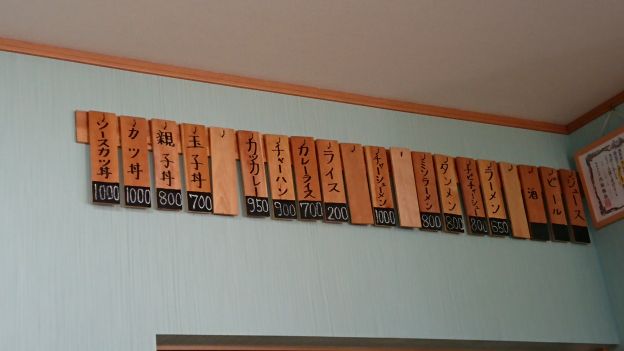 ジュース
ビール
酒
ラーメン
チビチャーシュー
800
タンメン
800
ミソラーメン
800
チャーシューメン
1000
ライス
200
カレーライス
700
チャーハン
900
カツカレー
950
玉子丼
700
親子丼
800
カツ丼
1000
ソースカツ丼
1000